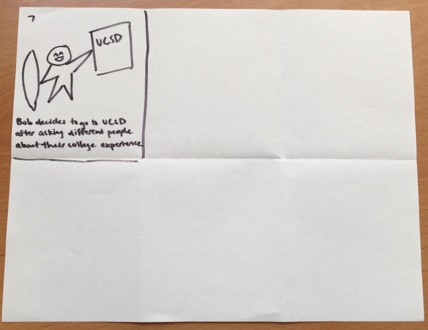 7
UCSD
Bob decides to go to UCSD
after asking different people
about their college experience